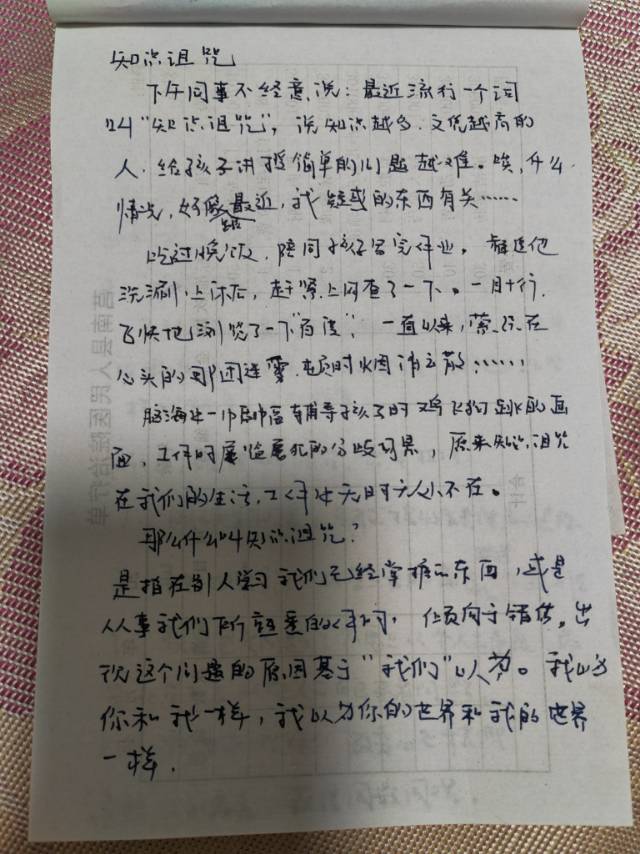 知识诅咒
下午同事不经意说：最近流行一个词
叫“知识诅咒”，说知识越多、文凭越高的
人，给孩子讲授简单的问题越难。唉，什么
情况，好像跟最近，我疑惑的东西有关……
吃过晚饭，陪同孩子写完作业，督促他
洗漱上床后，赶紧上网查了一下。一目十行，
飞快地浏览了一下“百度”，一直以来，萦绕在
心头的那团迷雾，屯顿时烟消云散……
脑海中一帧帧辅导孩子时鸡飞狗跳的画
面，工作时屡临屡犯的分歧，原来知识诅咒
在我们的生活，工作中无时无刻不在。
那么什么叫知识诅咒？
是指在别人学习我们已经掌握的东西，或是
从事我们所熟悉的工作时，倾向于错估。出
现这个问题的原因基于“我们”以为。我以为
你和我一样，我以为你的世界和我的世界
一样.